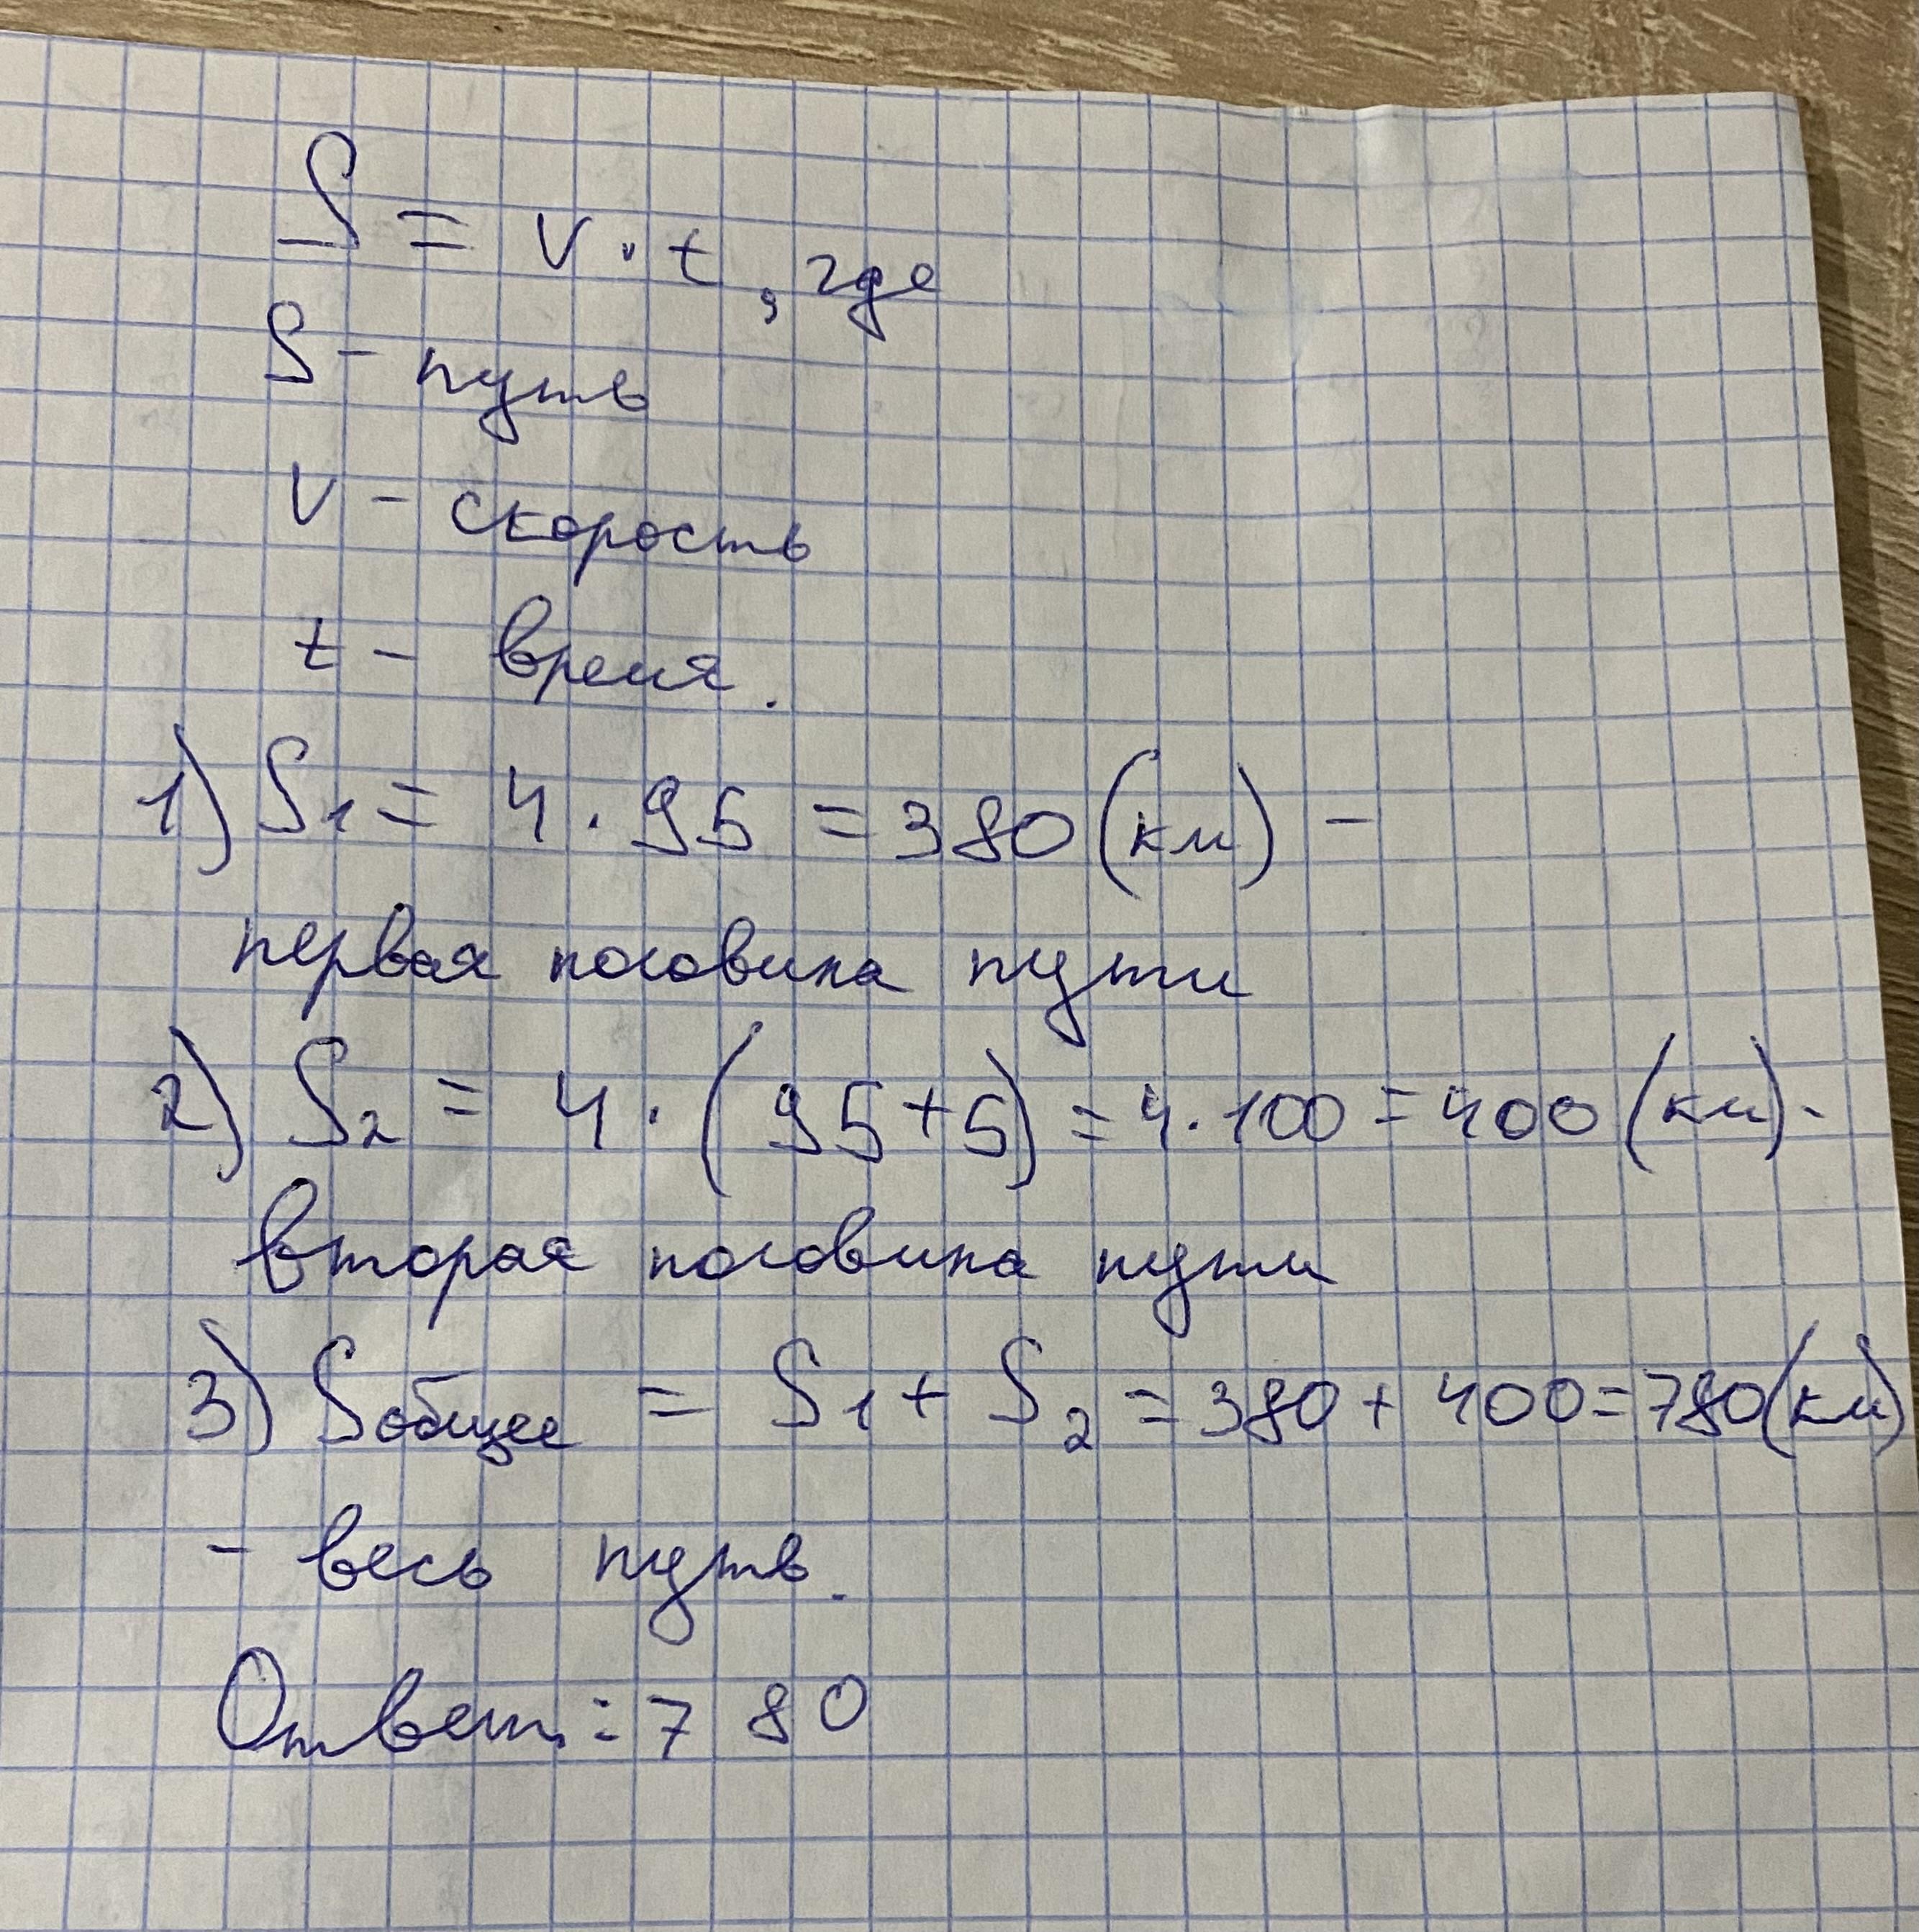 S = v · t, где
S - путь
v - скорость
t - время.
1) S₁ = 4 · 95 = 380 (км) -
первая половина пути
2) S₂ = 4 · (95+5) = 4 · 100 = 400 (км) -
вторая половина пути
3) Sобщее = S₁ + S₂ = 380 + 400 = 780 (км)
- весь путь.
Ответ: 780